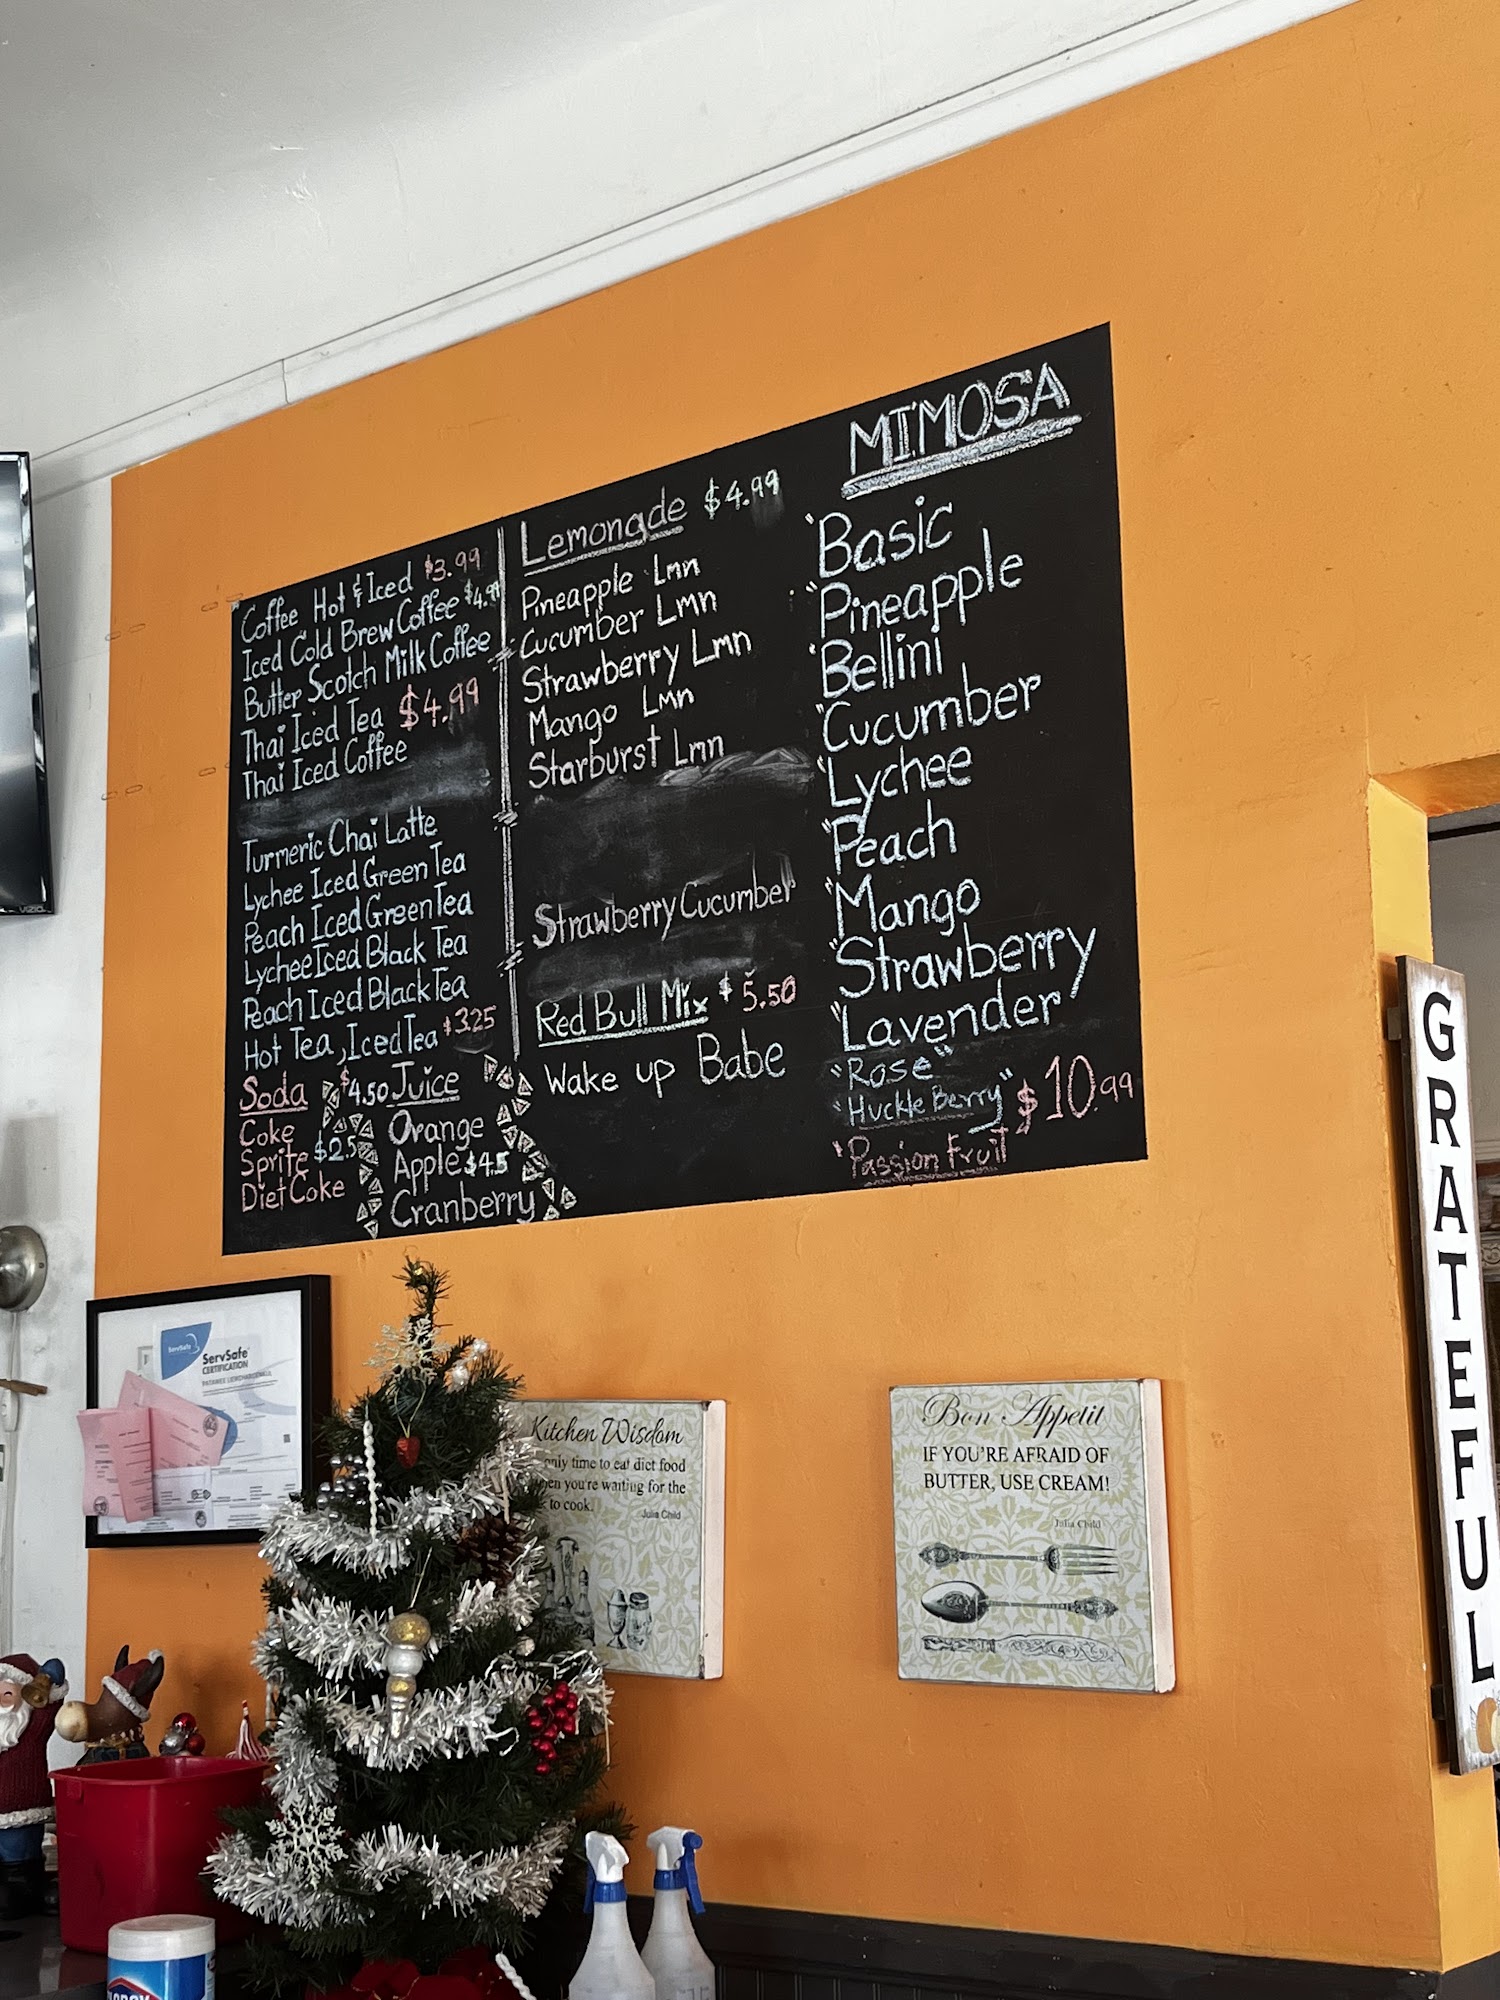 Coffee Hot & Iced $3.99
Iced Cold Brew Coffee $4.99
Butter Scotch Milk Coffee
Thai Iced Tea $4.99
Thai Iced Coffee
Turmeric Chai Latte
Lychee Iced Green Tea
Peach Iced Green Tea
Lychee Iced Black Tea
Peach Iced Black Tea
Hot Tea, Iced Tea $3.25
Soda
Coke
Sprite $2.5
Diet Coke
$4.50 Juice
Orange
Apple $4.5
Cranberry
Lemonade $4.99
Pineapple Lmn
Cucumber Lmn
Strawberry Lmn
Mango Lmn
Starburst Lmn
Strawberry Cucumber
Red Bull Mix $5.50
Wake up Babe
MIMOSA
"Basic
"Pineapple
"Bellini
"Cucumber
"Lychee
"Peach
"Mango
"Strawberry
"Lavender
"Rose"
"Huckle Berry" $10.99
"Passion Fruit
VIZIO
ServSafe
ServSafe
CERTIFICATION
Kitchen Wisdom
only time to eat diet food
you're waiting for the
to cook.
Julia Child
Bon Appetit
IF YOU'RE AFRAID OF
BUTTER, USE CREAM!
Julia Child
GRATEFUL